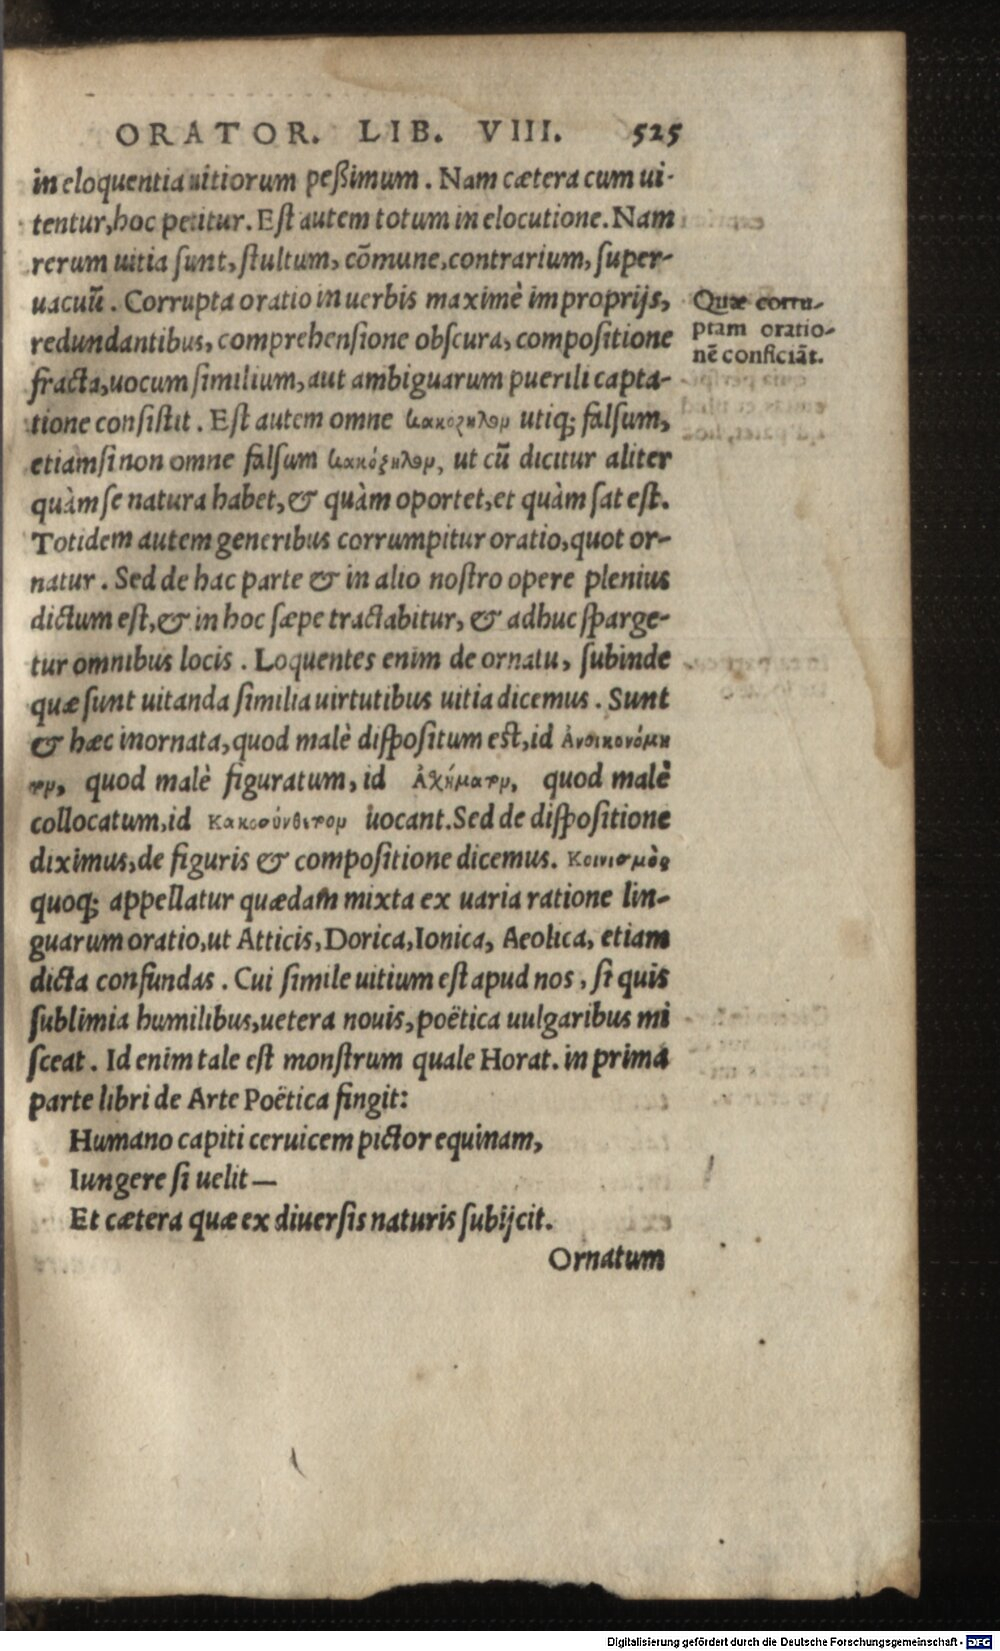 ORATOR. LIB. VIII. 525
in eloquentia uitiorum peßimum. Nam cætera cum ui-
tentur, hoc petitur. Est autem totum in elocutione. Nam
rerum uitia sunt, stultum, cōmune, contrarium, super-
uacuū. Corrupta oratio in uerbis maximè improprijs,
redundantibus, comprehensione obscura, compositione
fracta, uocum similium, aut ambiguarum puerili capta-
tione consistit. Est autem omne κακόζηλον utiq; falsum,
etiamsi non omne falsum κακόζηλον, ut cū dicitur aliter
quàm se natura habet, & quàm oportet, et quàm sat est.
Totidem autem generibus corrumpitur oratio, quot or-
natur. Sed de hac parte & in alio nostro opere plenius
dictum est, & in hoc sæpe tractabitur, & adhuc sparge-
tur omnibus locis. Loquentes enim de ornatu, subinde
quæ sunt uitanda similia uirtutibus uitia dicemus. Sunt
& hæc inornata, quod malè dispositum est, id Ἀνοικονόμη
τον, quod malè figuratum, id Ἀχήματον, quod malè
collocatum, id Κακοσύνθετον uocant. Sed de dispositione
diximus, de figuris & compositione dicemus. Κοινισμὸς
quoq; appellatur quædam mixta ex uaria ratione lin-
guarum oratio, ut Atticis, Dorica, Ionica, Aeolica, etiam
dicta confundas. Cui simile uitium est apud nos, si quis
sublimia humilibus, uetera nouis, poëtica uulgaribus mi
sceat. Id enim tale est monstrum quale Horat. in prima
parte libri de Arte Poëtica fingit:
Humano capiti ceruicem pictor equinam,
Iungere si uelit—
Et cætera quæ ex diuersis naturis subijcit.
Ornatum
Quæ corru-
ptam oratio-
nē conficiāt.
Digitalisierung gefördert durch die Deutsche Forschungsgemeinschaft - DFG